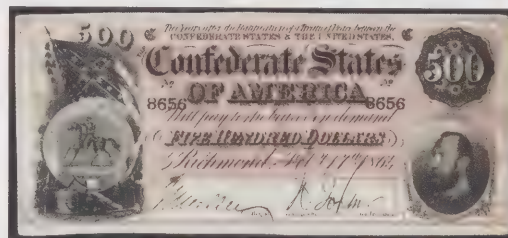 500
Two Years after the Ratification of a Treaty of Peace between the
CONFEDERATE STATES & THE UNITED STATES,
Confederate States
500
No No
8656 OF AMERICA 8656
Will pay to the bearer on demand
FIVE HUNDRED DOLLARS
Richmond, Feb. 17th 1864